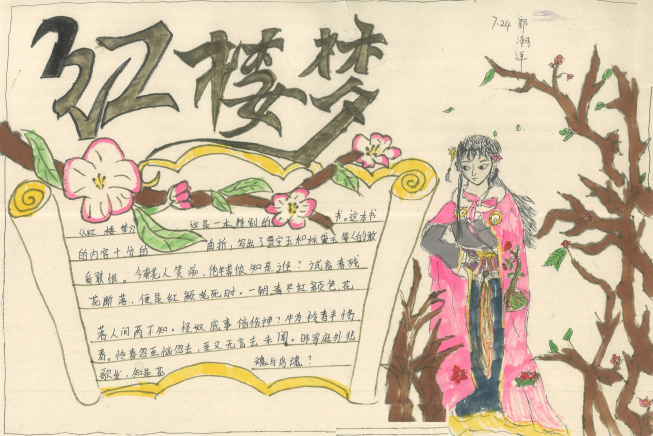 红楼梦
7.24
《红楼梦》 这是一本特别的 书。这本书
的内容十分的 曲折,写出了贾宝玉和林黛玉等人的故
侬今葬花人笑痴,他年葬侬知是谁?试看春残
花渐落,便是红颜老死时。一朝春尽红颜老,花
落人间两不知。怪奴底事倍伤神?半为怜春半恼
春。怜春忽至恼忽去,至又无言去未闻。昨宵庭外悲
歌发,知是花 魂与鸟魂?